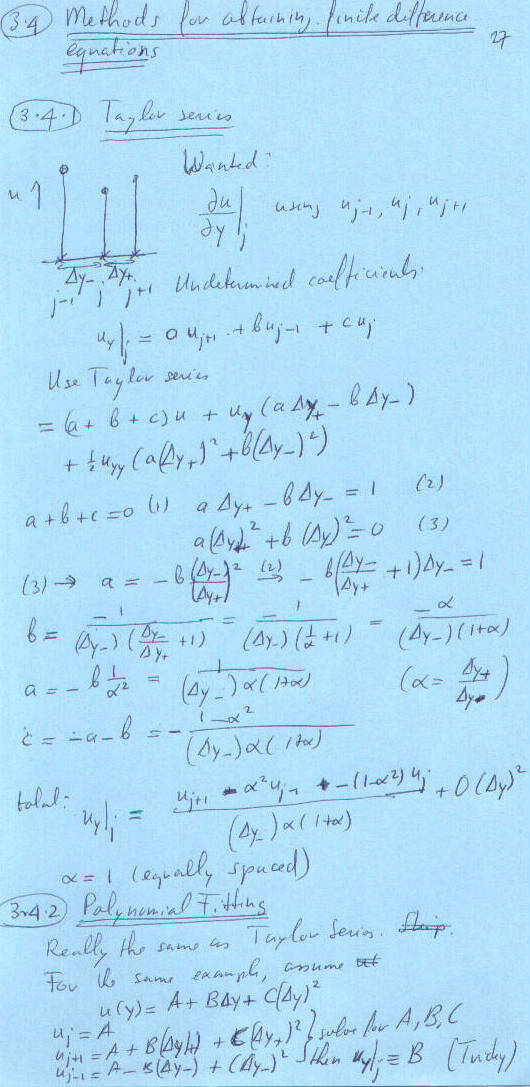 3.4 Methods for obtaining finite difference
27
equations
3.4.1 Taylor series
Wanted:
u ↑
∂u/∂y|j using uj-1, uj, uj+1
Δy- Δy+
j-1 j j+1 Undetermined coefficients:
uy|j = a uj+1 + b uj-1 + c uj
Use Taylor series
= (a + b + c) u + uy (a Δy+ - b Δy-)
+ ½ uyy (a(Δy+)² + b(Δy-)²)
a + b + c = 0 (1) a Δy+ - b Δy- = 1 (2)
a(Δy+)² + b (Δy)² = 0 (3)
(3) → a = - b (Δy-)²/(Δy+)² (2)⇒ - b(Δy-/Δy+ + 1) Δy- = 1
b = -1/((Δy-)(Δy-/Δy+ + 1)) = -1/((Δy-)(1/α + 1)) = -α/((Δy-)(1+α))
a = - b 1/α² = 1/((Δy-) α(1+α)) (α = Δy+/Δy-)
c = -a - b = - (1-α²)/((Δy-) α(1+α))
total: uy|j = (uj+1 - α² uj-1 - (1-α²) uj)/((Δy-) α(1+α)) + O(Δy)²
α = 1 (equally spaced)
3.4.2 Polynomial Fitting
Really the same as Taylor Series. Skip.
For the same example, assume
u(y) = A + BΔy + C(Δy)²
uj = A
uj+1 = A + B(Δy+) + C(Δy+)² } solve for A, B, C
uj-1 = A - B(Δy-) + C(Δy-)² then uy|j ≡ B